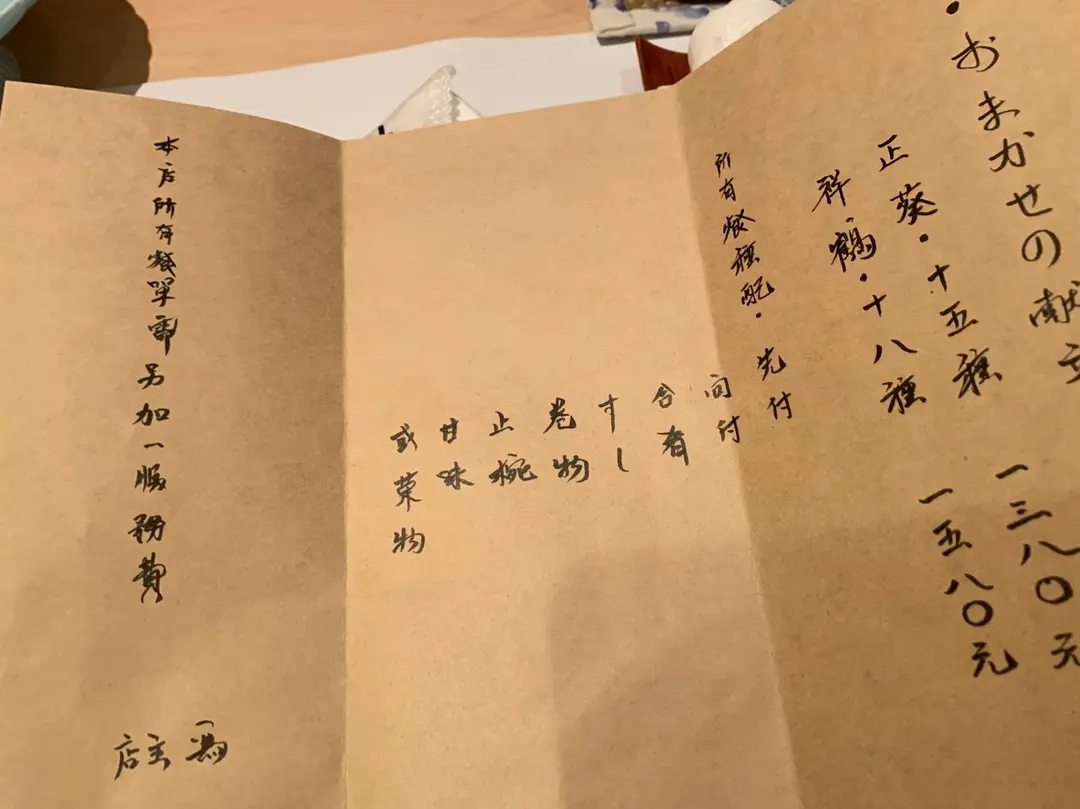 ・おまかせの献立
正葵・十五種 一三八〇元
祥鶴・十八種 一五八〇元
所有餐種配・先付
间付
合肴
すし
巻物
止椀
甘味
或菓物
本店所有餐單需另加一服務費
店主